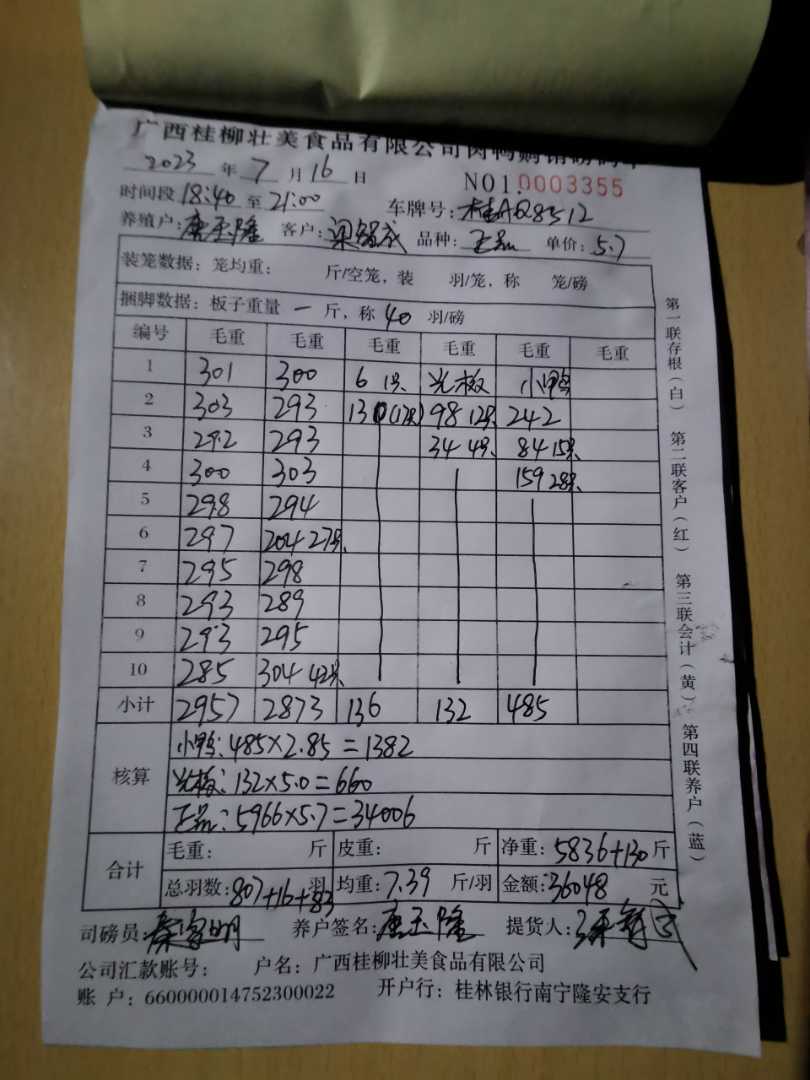 广西桂柳壮美食品有限公司肉鸭购销磅码单
2023 年 7 月 16 日 NO1.0003355
时间段 18:40 至 21:00 车牌号: 桂AQ8512
养殖户: 唐玉隆 客户: 梁锦成 品种: 正品 单价: 5.7
装笼数据: 笼均重: 斤/空笼, 装 羽/笼, 称 笼/磅
捆脚数据: 板子重量 一 斤, 称 40 羽/磅
编号 毛重 毛重 毛重 毛重 毛重 毛重
1 301 300 6 1只 光板 小鸭
2 303 293 130(12只) 98 12只 242
3 292 293 34 4只 84 15只
4 300 303 159 28只
5 298 294
6 297 204 27只
7 295 298
8 293 289
9 293 295
10 285 304 42只
小计 2957 2873 136 132 485
核算
小鸭: 485×2.85=1382
光板: 132×5.0=660
正品: 5966×5.7=34006
合计
毛重: 斤 皮重: 斤 净重: 5836+130 斤
总羽数: 807+16+83 羽 均重: 7.39 斤/羽 金额: 36048 元
司磅员: 养户签名: 唐玉隆 提货人:
公司汇款账号: 户名: 广西桂柳壮美食品有限公司
账 户: 660000014752300022 开户行: 桂林银行南宁隆安支行
第一联存根(白) 第二联客户(红) 第三联会计(黄) 第四联养户(蓝)